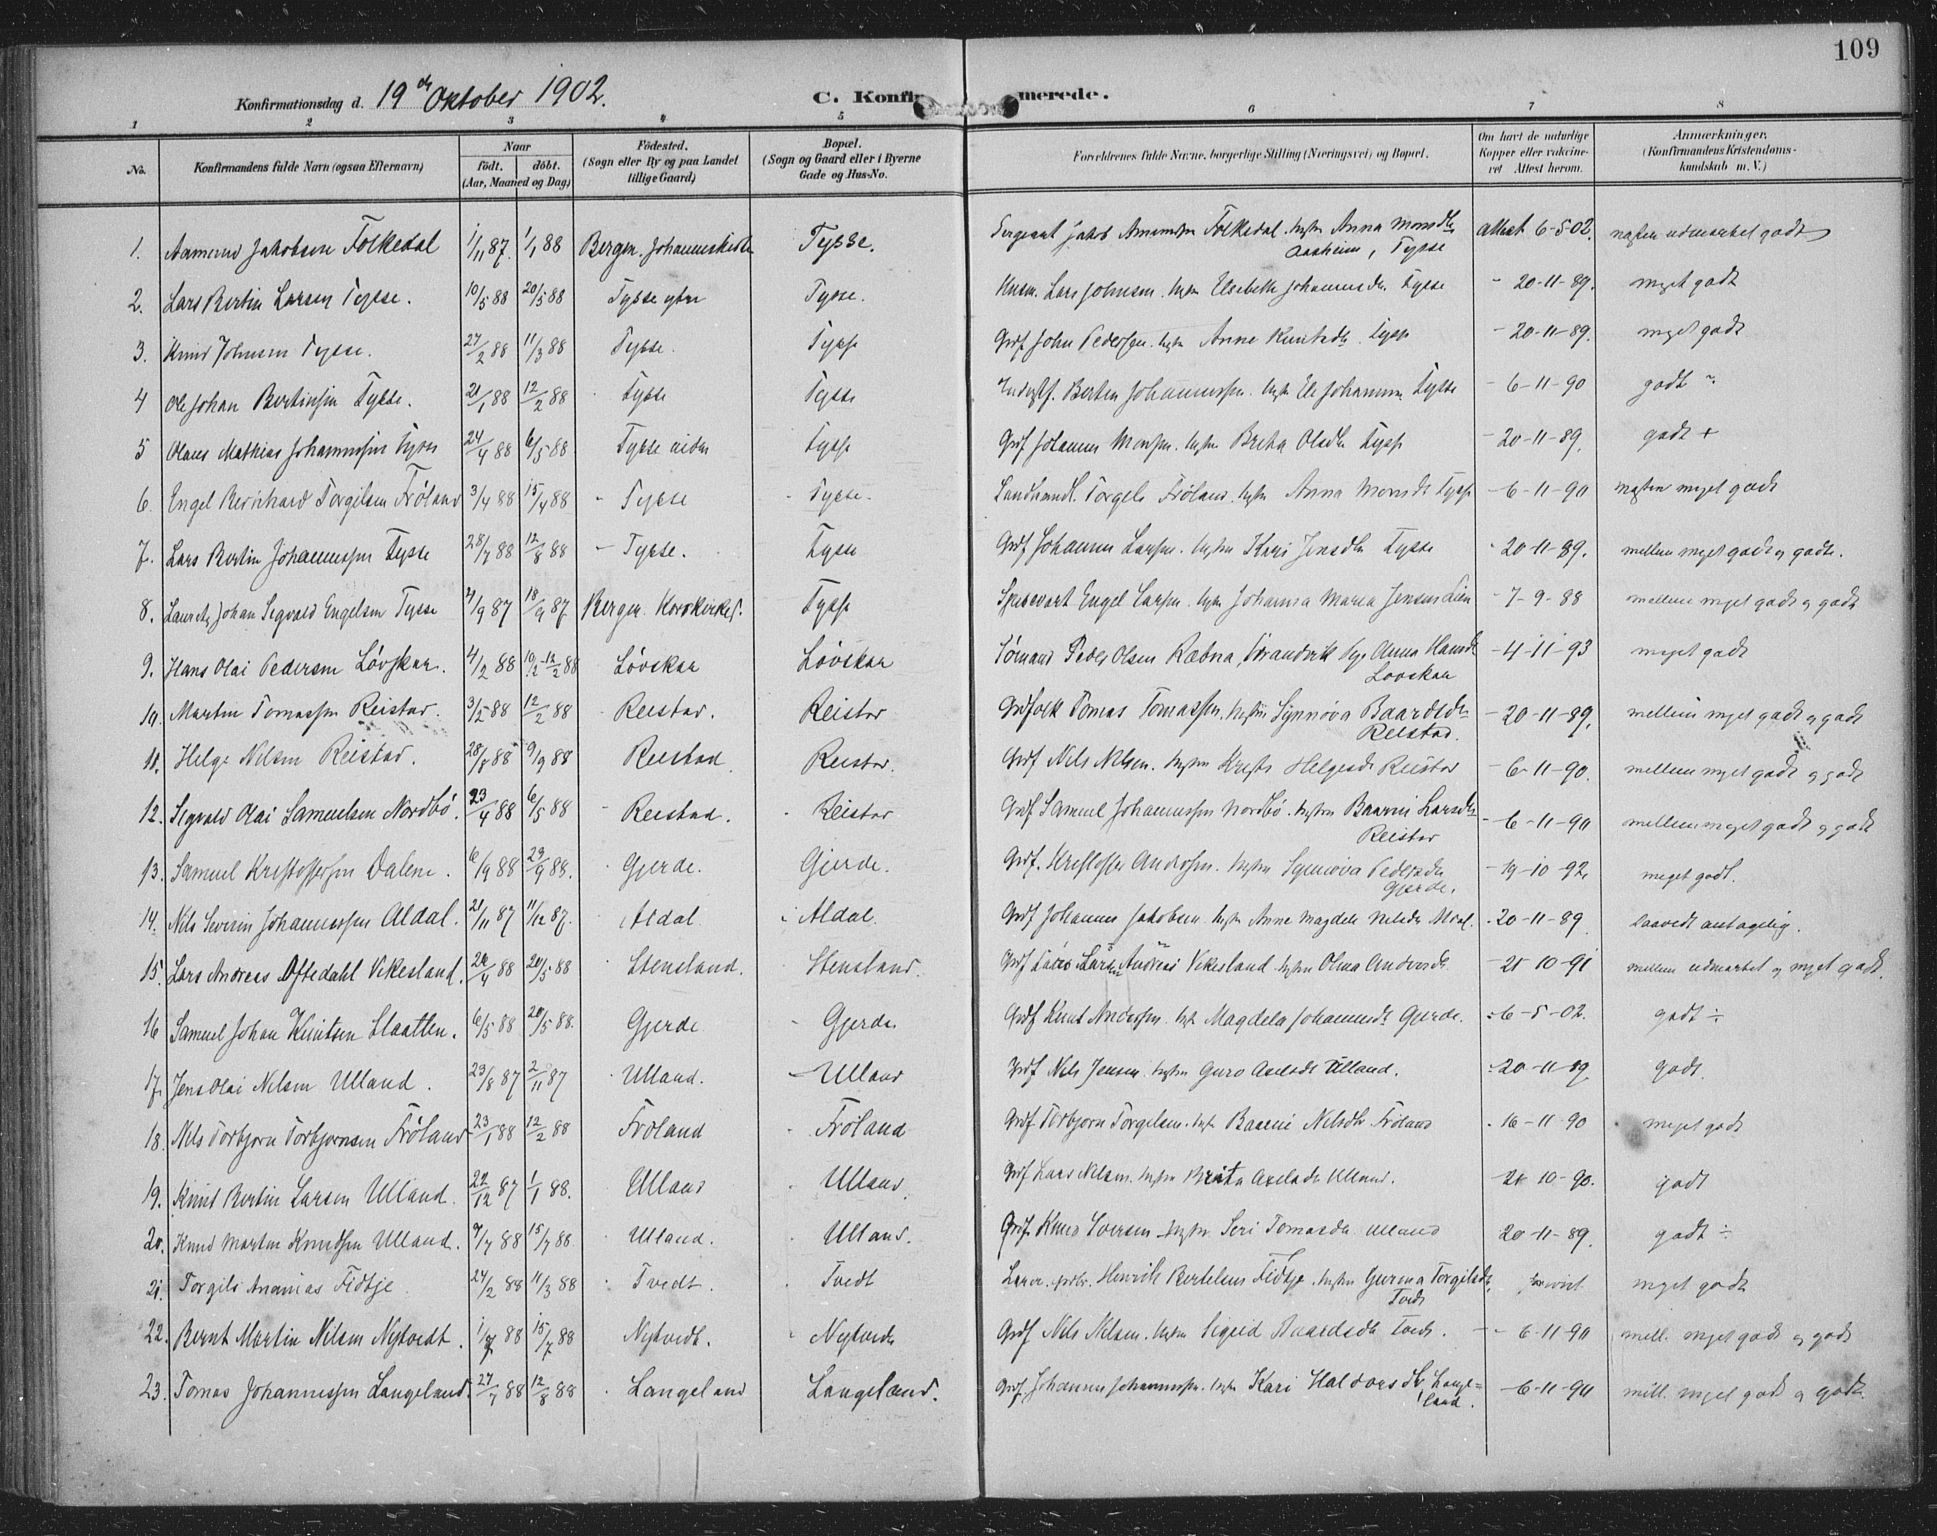 109
Konfirmationsdag d. 19de Oktober 1902. C. Konfirmerede.
1 2 3 4 5 6 7 8
No. Konfirmandens fulde Navn (ogsaa Efternavn) Naar født. døbt. (Aar, Maaned og Dag) Födested. (Sogn eller By og paa Landet tillige Gaard) Bopæl. (Sogn og Gaard eller i Byerne Gade og Hus-No. Forældrenes fulde Navne, borgerlige Stilling (Næringsvei) og Bopæl. Om havt de naturlige Kopper eller vakcineret Attest herom. Anmærkninger. (Konfirmandens Kristendomskundskab m. V.)
1. Aamund Jakobsen Folkedal 1/11 87. 1/1 88 Bergen. Johanneskirken Tysse. Sergeant Jakob Amundsen Folkedal. Anna Monsdtr Aasheim, Tysse attest 6-5-02. næsten udmærket godt
2. Lars Bertin Larsen Tysse. 10/5 88 20/5 88 Tysse ytre Tysse. Husm. Lars Johnsen. Elsebeth Johannesdtr. Tysse - 20-11-89. meget godt
3. Knud Johnsen Tysse. 27/2 88 11/3 88 Tysse. Tysse Grdf. John Pedersen. Anne Knutsdtr. Tysse - 20-11-89. meget godt
4 Ole Johan Bertinsen Tysse. 21/1 88 12/2 88 Tysse Tysse Bertin Johannessen. Johannesdtr Tysse - 6-11-90 godt ÷
5 Olaus Mathias Johannessen Tysse 24/4 88 6/5 88 Tysse Tysse Grdf Johannes Monsen. Brita Olsdtr Tysse - 20-11-89. godt +
6. Engel Bernhard Torgilsen Frøland 3/4 88 15/4 88 - Tysse - Tysse. Landhandl. Torgils Frøland. Anna Monsdtr Tysse - 6-11-90 næsten meget godt
7. Lars Bertin Johannessen Tysse 28/7 88 12/8 88 - Tysse. Tysse Grdf Johannes Larsen. Kari Jensdtr Tysse - 20-11-89. mellem meget godt og godt.
8. Lauritz Johan Sigvald Engelsen Tysse 4/9 87 18/9 87 Bergen. Korskirken. Tysse Spisevert Engel Larsen. Johanna Maria Jensen Lien - 7-9-88 mellem meget godt og godt
9. Hans Olai Pedersen Løvskar. 4/2 88 12/2 88 Løvskar Løvskar Sømand Peder Olsen Ræbna, Strandvik Anna Hansdtr Løvskar - 4-11-93 meget godt
10. Martin Tomassen Reistad. 3/2 88 12/2 88 Reistad. Reistad Grdfolk Tomas Tomassen. Synnøva Baardsdtr Reistad. - 20-11-89. mellem meget godt og godt
11. Helge Nilsen Reistad. 28/8 88 9/9 88 Reistad. Reistad. Grdf Nils Nilsen. Helgesdtr Reistad - 6-11-90. mellem meget godt og godt
12. Sigvald Olai Samuelsen Nordbö. 23/4 88 6/5 88 Reistad. Reistad Grdf Samuel Johannessen Nordbö. Baarni Larsdtr Reistad - 6-11-90 mellem meget godt og godt
13. Samuel Kristoffersen Dalene. 6/9 88 23/9 88. Gjerde. Gjerde. Grdf. Kristoffer Andersen. Synnöva Pedersdtr Gjerde. - 19-10-92. meget godt.
14. Nils Severin Johannessen Aldal. 21/11 87 11/12 87. Aldal Aldal. Grdf Johannes Jakobsen. Anne Magdele Nilsdtr Aldal. - 20-11-89 antagelig.
15. Lars Andreas Oftedahl Vikesland. 26/4 88 20/5 88 Stensland. Stensland. Grdf Lars Andreas Vikesland. Olina Andersdtr - 21-10-91 mellem udmærket og meget godt.
16 Samuel Johan Knutsen Slaatten. 6/5 88 20/5 88. Gjerde - Gjerde. Grdf Knut Andersen. Magdela Johannesdtr Gjerde. - 6-5-02. godt ÷
17. Jens Olai Nilsen Ulland. 23/8 87 2/11 87 Ulland. - Ulland Grdf Nils Jensen. Guro Axelsdtr Ulland. - 20-11-89 godt.
18. Nils Torbjørn Torbjørnsen Frøland 23/1 88 12/2 88 Frøland Frøland Grdf Torbjørn Torgilsen. Baarni Nilsdtr Frøland - 16-11-90 meget godt
19. Knut Bertin Larsen Ulland. 22/12 87 1/1 88. Ulland Ulland. Grdf Lars Nilsen. Brita Axelsdtr Ulland. 21-10-90. godt
20. Knud Martin Knudsen Ulland. 9/7 88 15/7 88 Ulland. Ulland. Grdf Knud Iversen. Seri Tomasdtr Ulland 20-11-89. godt ÷
21. Torgils Ananias Fidtje 24/2 88 11/3 88 Tvedt. Tvedt Henrik Bertelsen Fidtje. Gurina Torgilsdtr. Tvedt meget godt
22. Bernt Martin Nilsen Nytvedt. 1/7 88 15/7 88 Nytvedt. Nytvedt Grdf Nils Nilsen. Sigrid Baardsdtr Tvedt. - 6-11-90 mell. meget godt og godt
23. Tomas Johannessen Langeland. 27/7 88 12/8 88 Langeland Langeland. Grdf. Johannes Johannessen. Kari Haldorsdtr. Langeland. - 6-11-90 mell. meget godt og godt